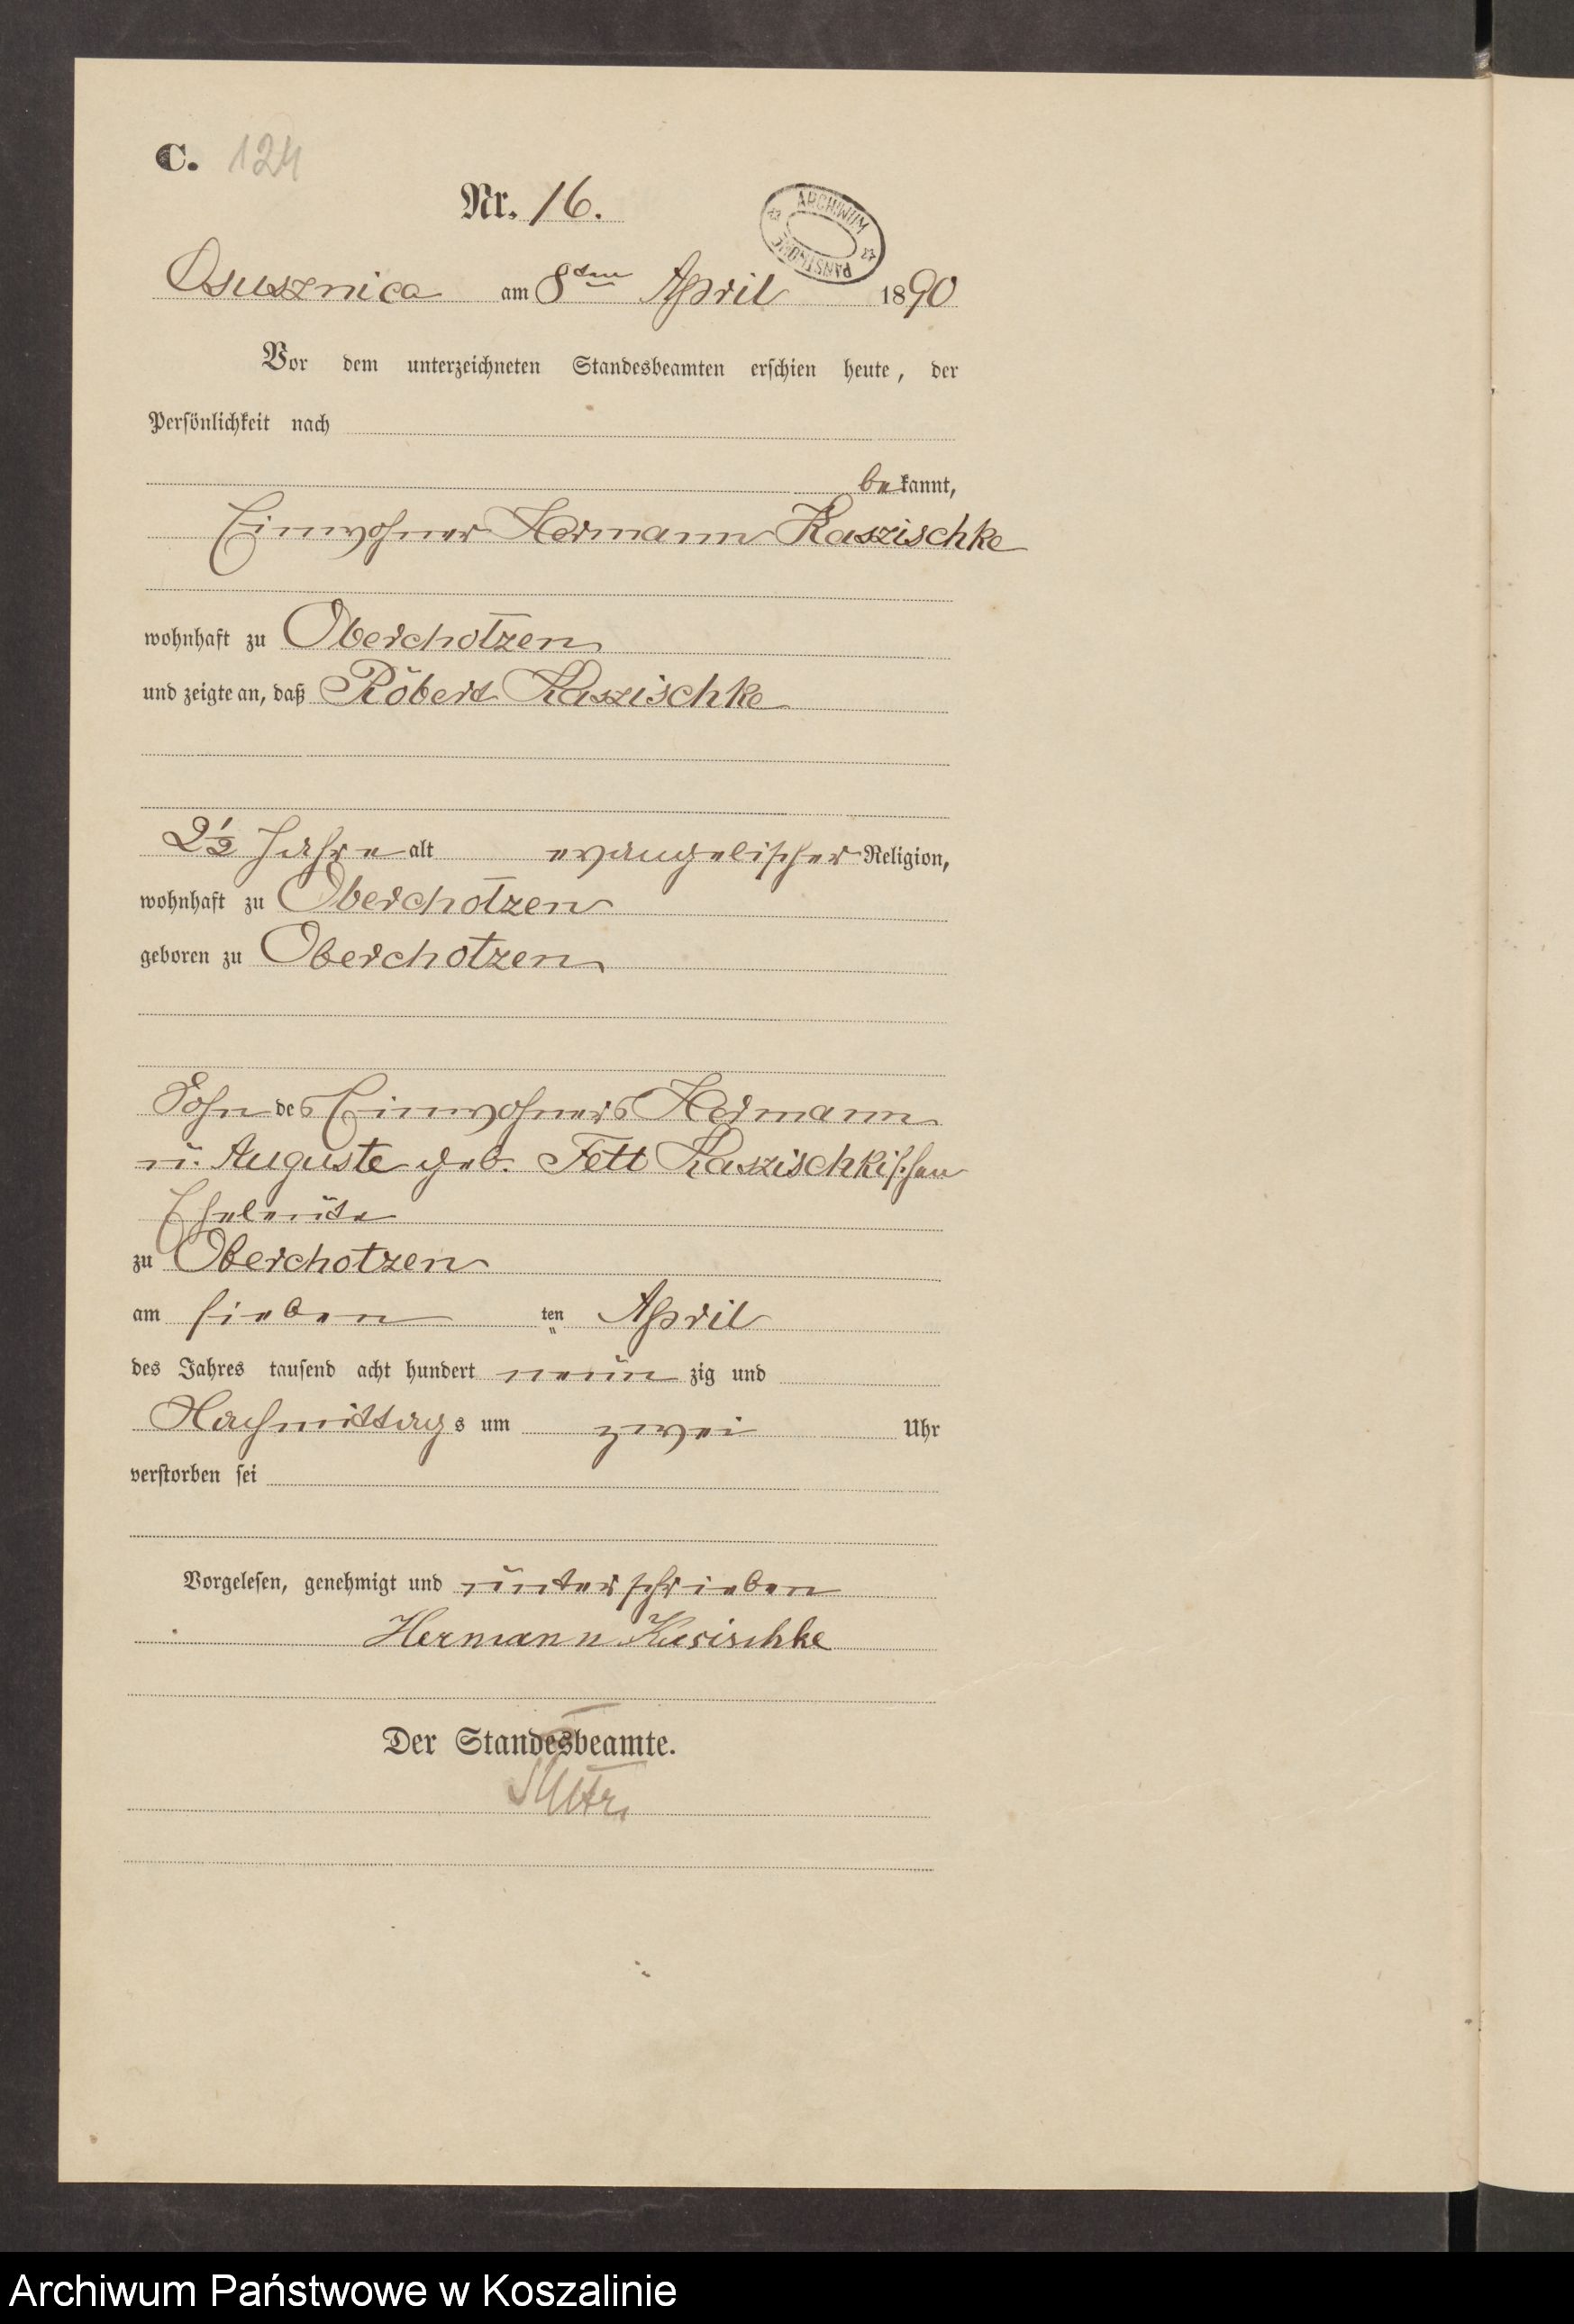 C. 124
Nr. 16.
ARCHIWUM PAŃSTWOWE
Osusznica am 8ten April 1890
Vor dem unterzeichneten Standesbeamten erschien heute, der
Persönlichkeit nach
bekannt,
Einwohner Hermann Kaszischke
wohnhaft zu Oberchotzen
und zeigte an, daß Robert Kaszischke
2½ Jahre alt evangelischer Religion,
wohnhaft zu Oberchotzen
geboren zu Oberchotzen
Sohn des Einwohners Hermann
u. Auguste geb. Fett Kaszischkischen
Eheleute
zu Oberchotzen
am sieben ten April
des Jahres tausend acht hundert neun zig und
Nachmittags um zwei Uhr
verstorben sei
Vorgelesen, genehmigt und unterschrieben
Hermann Kasischke
Der Standesbeamte.
Archiwum Państwowe w Koszalinie